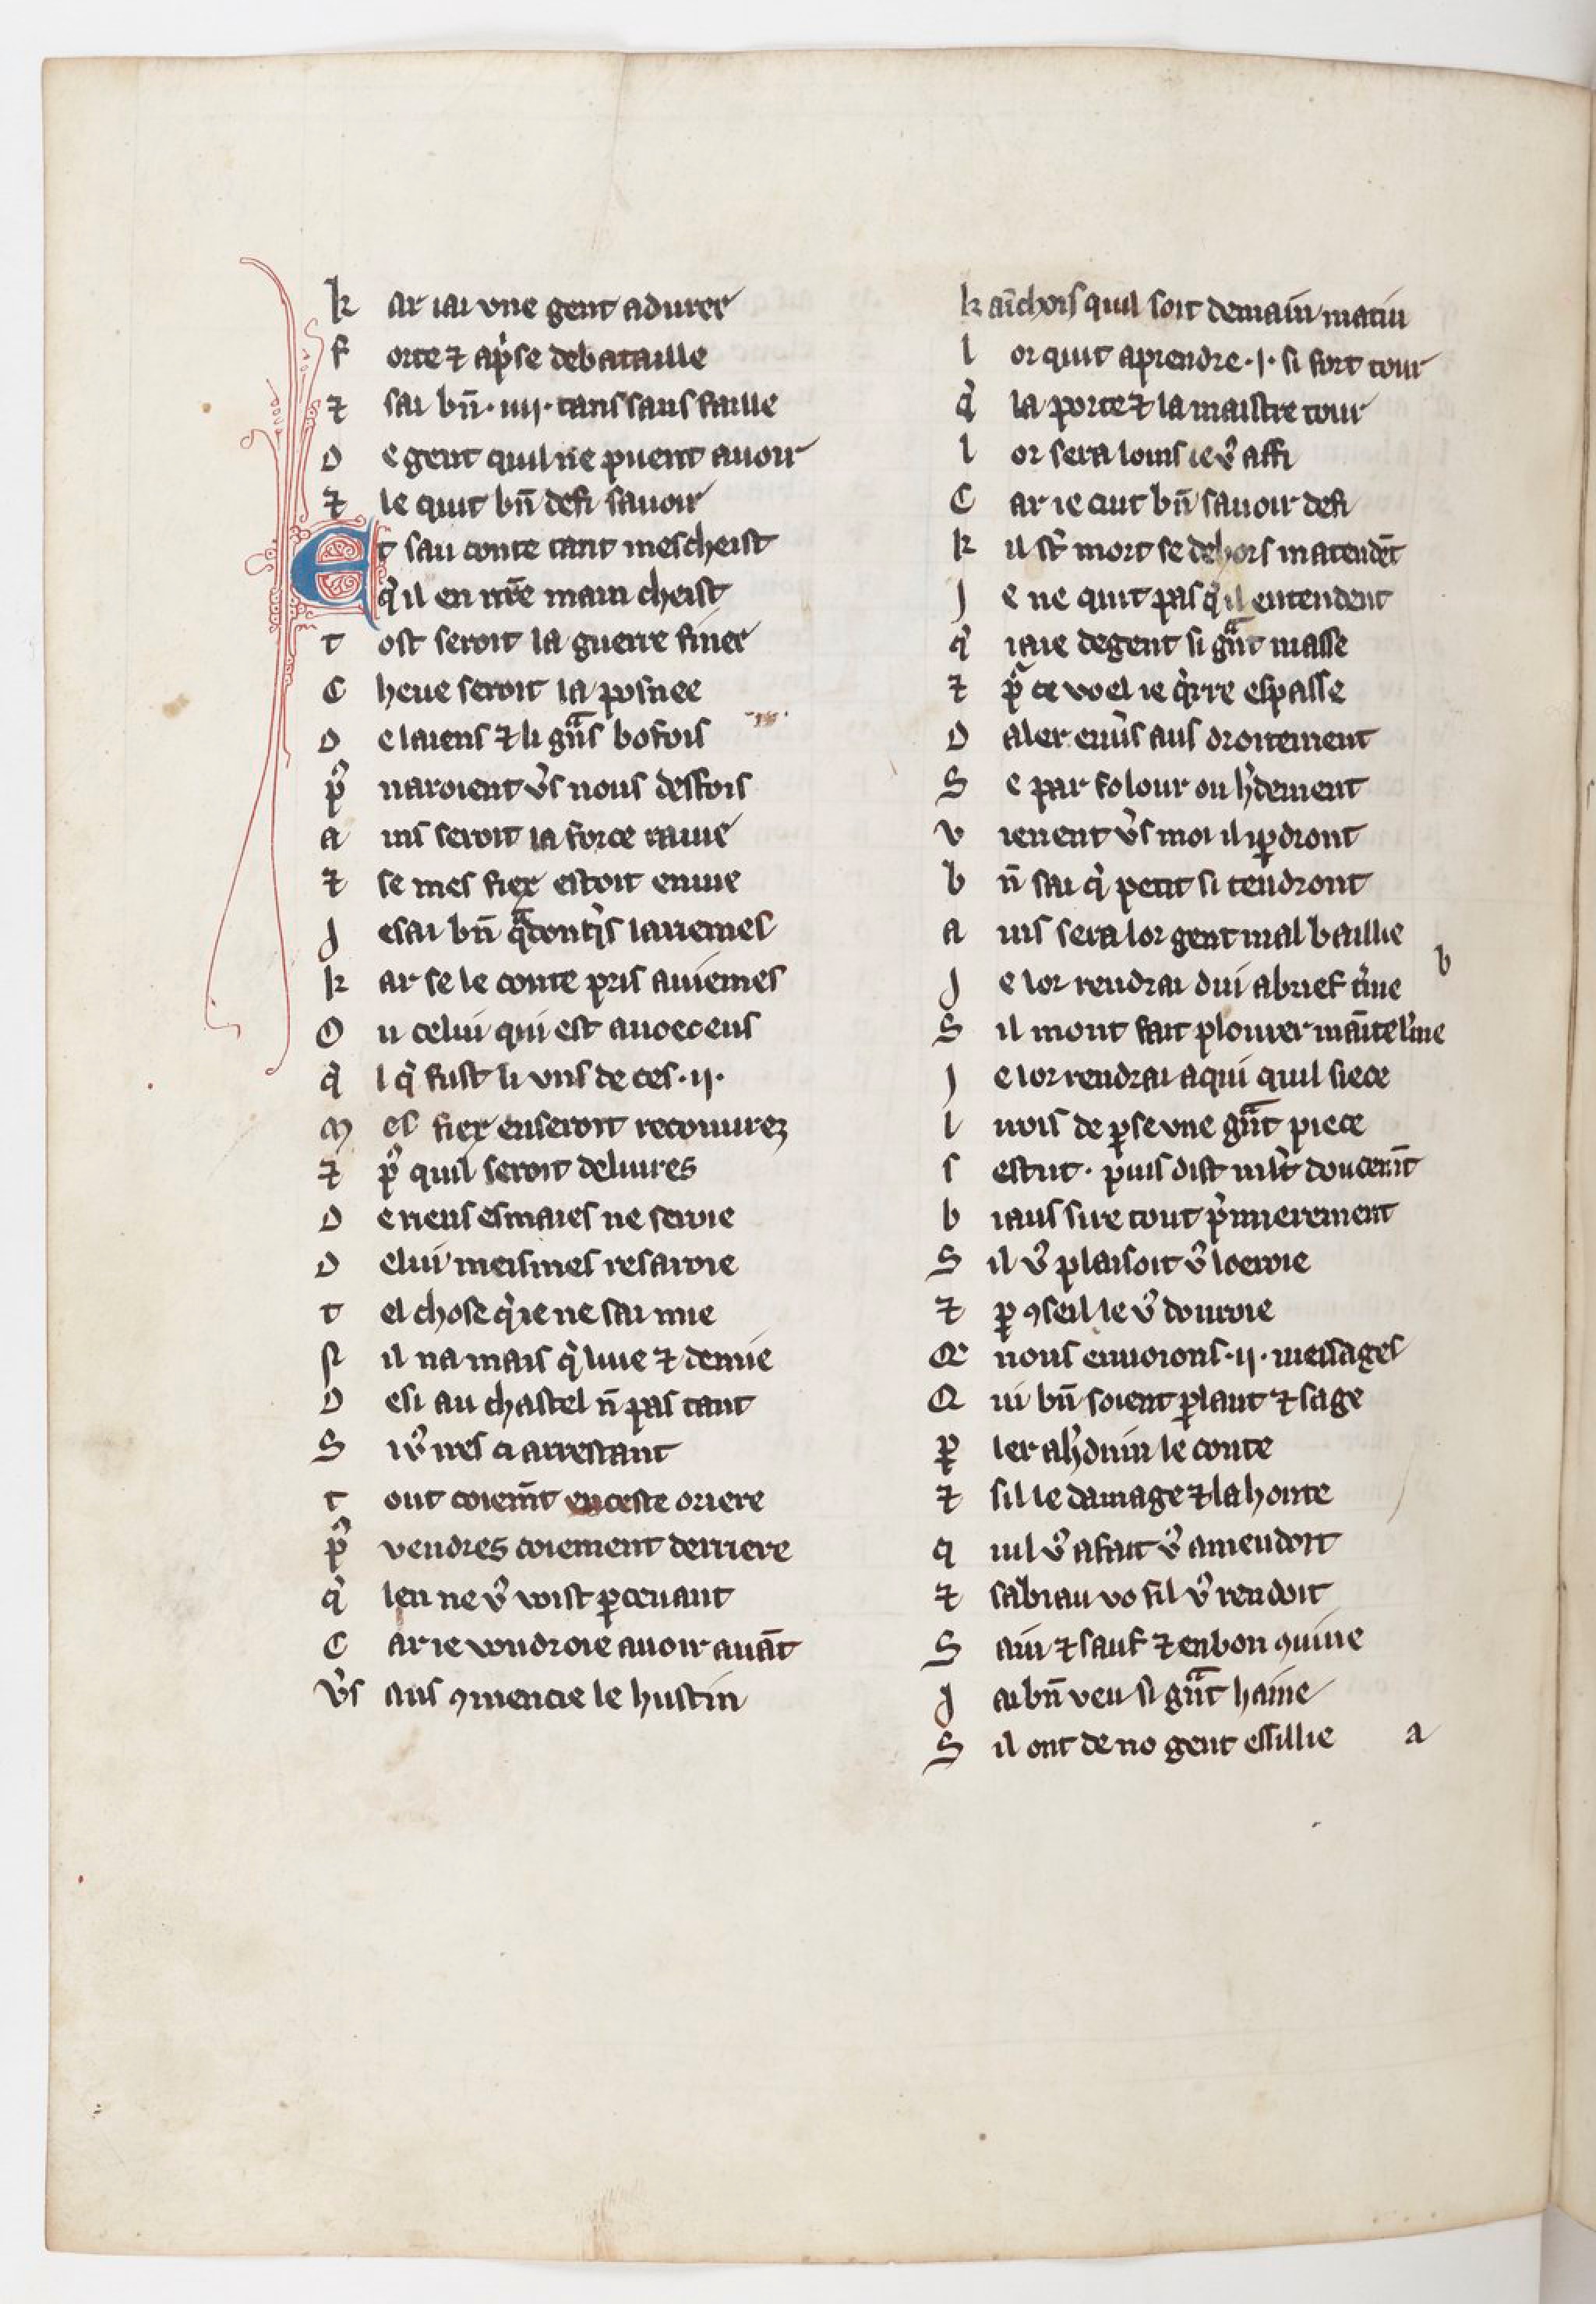 k ar iai vne gent aduree
f orte ⁊ ap̓se de bataille
⁊ sai bn̄ ·iiij· tans sans faille
d e gent quil ne puent auoir
⁊ le quit bn̄ de fi sauoir
Et sau conte tant mescheist
q̓ il en nr̄e main cheist
t ost seroit la guerre finee
c heue seroit la posnee
d e laiens ⁊ li gᵃns bofois
p̓ naroient v̓s nous desfois
a ins seroit la force raiue
⁊ se mes fiex estoit en uie
j e sai bn̄ qᵃ dont q̓s lariemes
k ar se le conte pris auiemes
o u celui qui est auoec eus
q̓ l q̓ fust li vns de ces ·ij·
m es fiex en seroit recouurez
⁊ pᵒ quil seroit deliures
d e riens esmaies ne seroie
d e lui meismes resaroie
t el chose q̓ ie ne sai mie
s il na mais q̓ liue ⁊ demie
d e si au chastel n̄ pas tant
s i vᵒ nes ci arrestant
t out coiem̄t en ceste oriere
pᵒ vendres coiement derriere
q̓ len ne vᵒ voist ꝑceuant
c ar ie voudroie auoir auāt
v̓s aus ꝯmencie le hustin
k aīchois quil soit demain matin
l or quit aprendre ·j· si fort tour
q̓ la porte ⁊ la maistre tour
l or sera loins ie vᵒ affi
c ar ie cuit bn̄ sauoir de fi
k il st̓ mort se dehors matendēt
j e ne quit pas q̓ il entendent
q̓ iaie de gent si gᵃnt masse
⁊ pᵒ ce voel ie q̓rre espasse
d aler enu̓s aus droitement
s e par folour ou h̓dement
v ienent v̓s moi il i ꝑdront
b n̄ sai q̓ petit si tendront
a ins sera lor gent mal baillie b
j e lor rendrai dui a brief t̓me
s il mont fait plourer mainte l̓me
j e lor rendrai a qui quil siece
l uois de ꝑse vne gᵃnt piece
s estut · puis dist ml̓t doucem̄t
b iaus sire tout p̓mierement
s il vᵒ plaisoit vᵒ loeroie
⁊ ꝑ ꝯseil le vᵒ donroie
q̓ nous enuoions ·ij· messages
q ui bn̄ soient ꝑlant ⁊ sage
ꝑ ler a h̓duin le conte
⁊ sil le damage ⁊ la honte
q uil vᵒ a fait vᵒ amendoit
⁊ sabiau vo fil vᵒ rendoit
s ain ⁊ sauf ⁊ en bon ꝯuine
j ai bn̄ veu si gᵃnt haine
s il ont de no gent essillie a